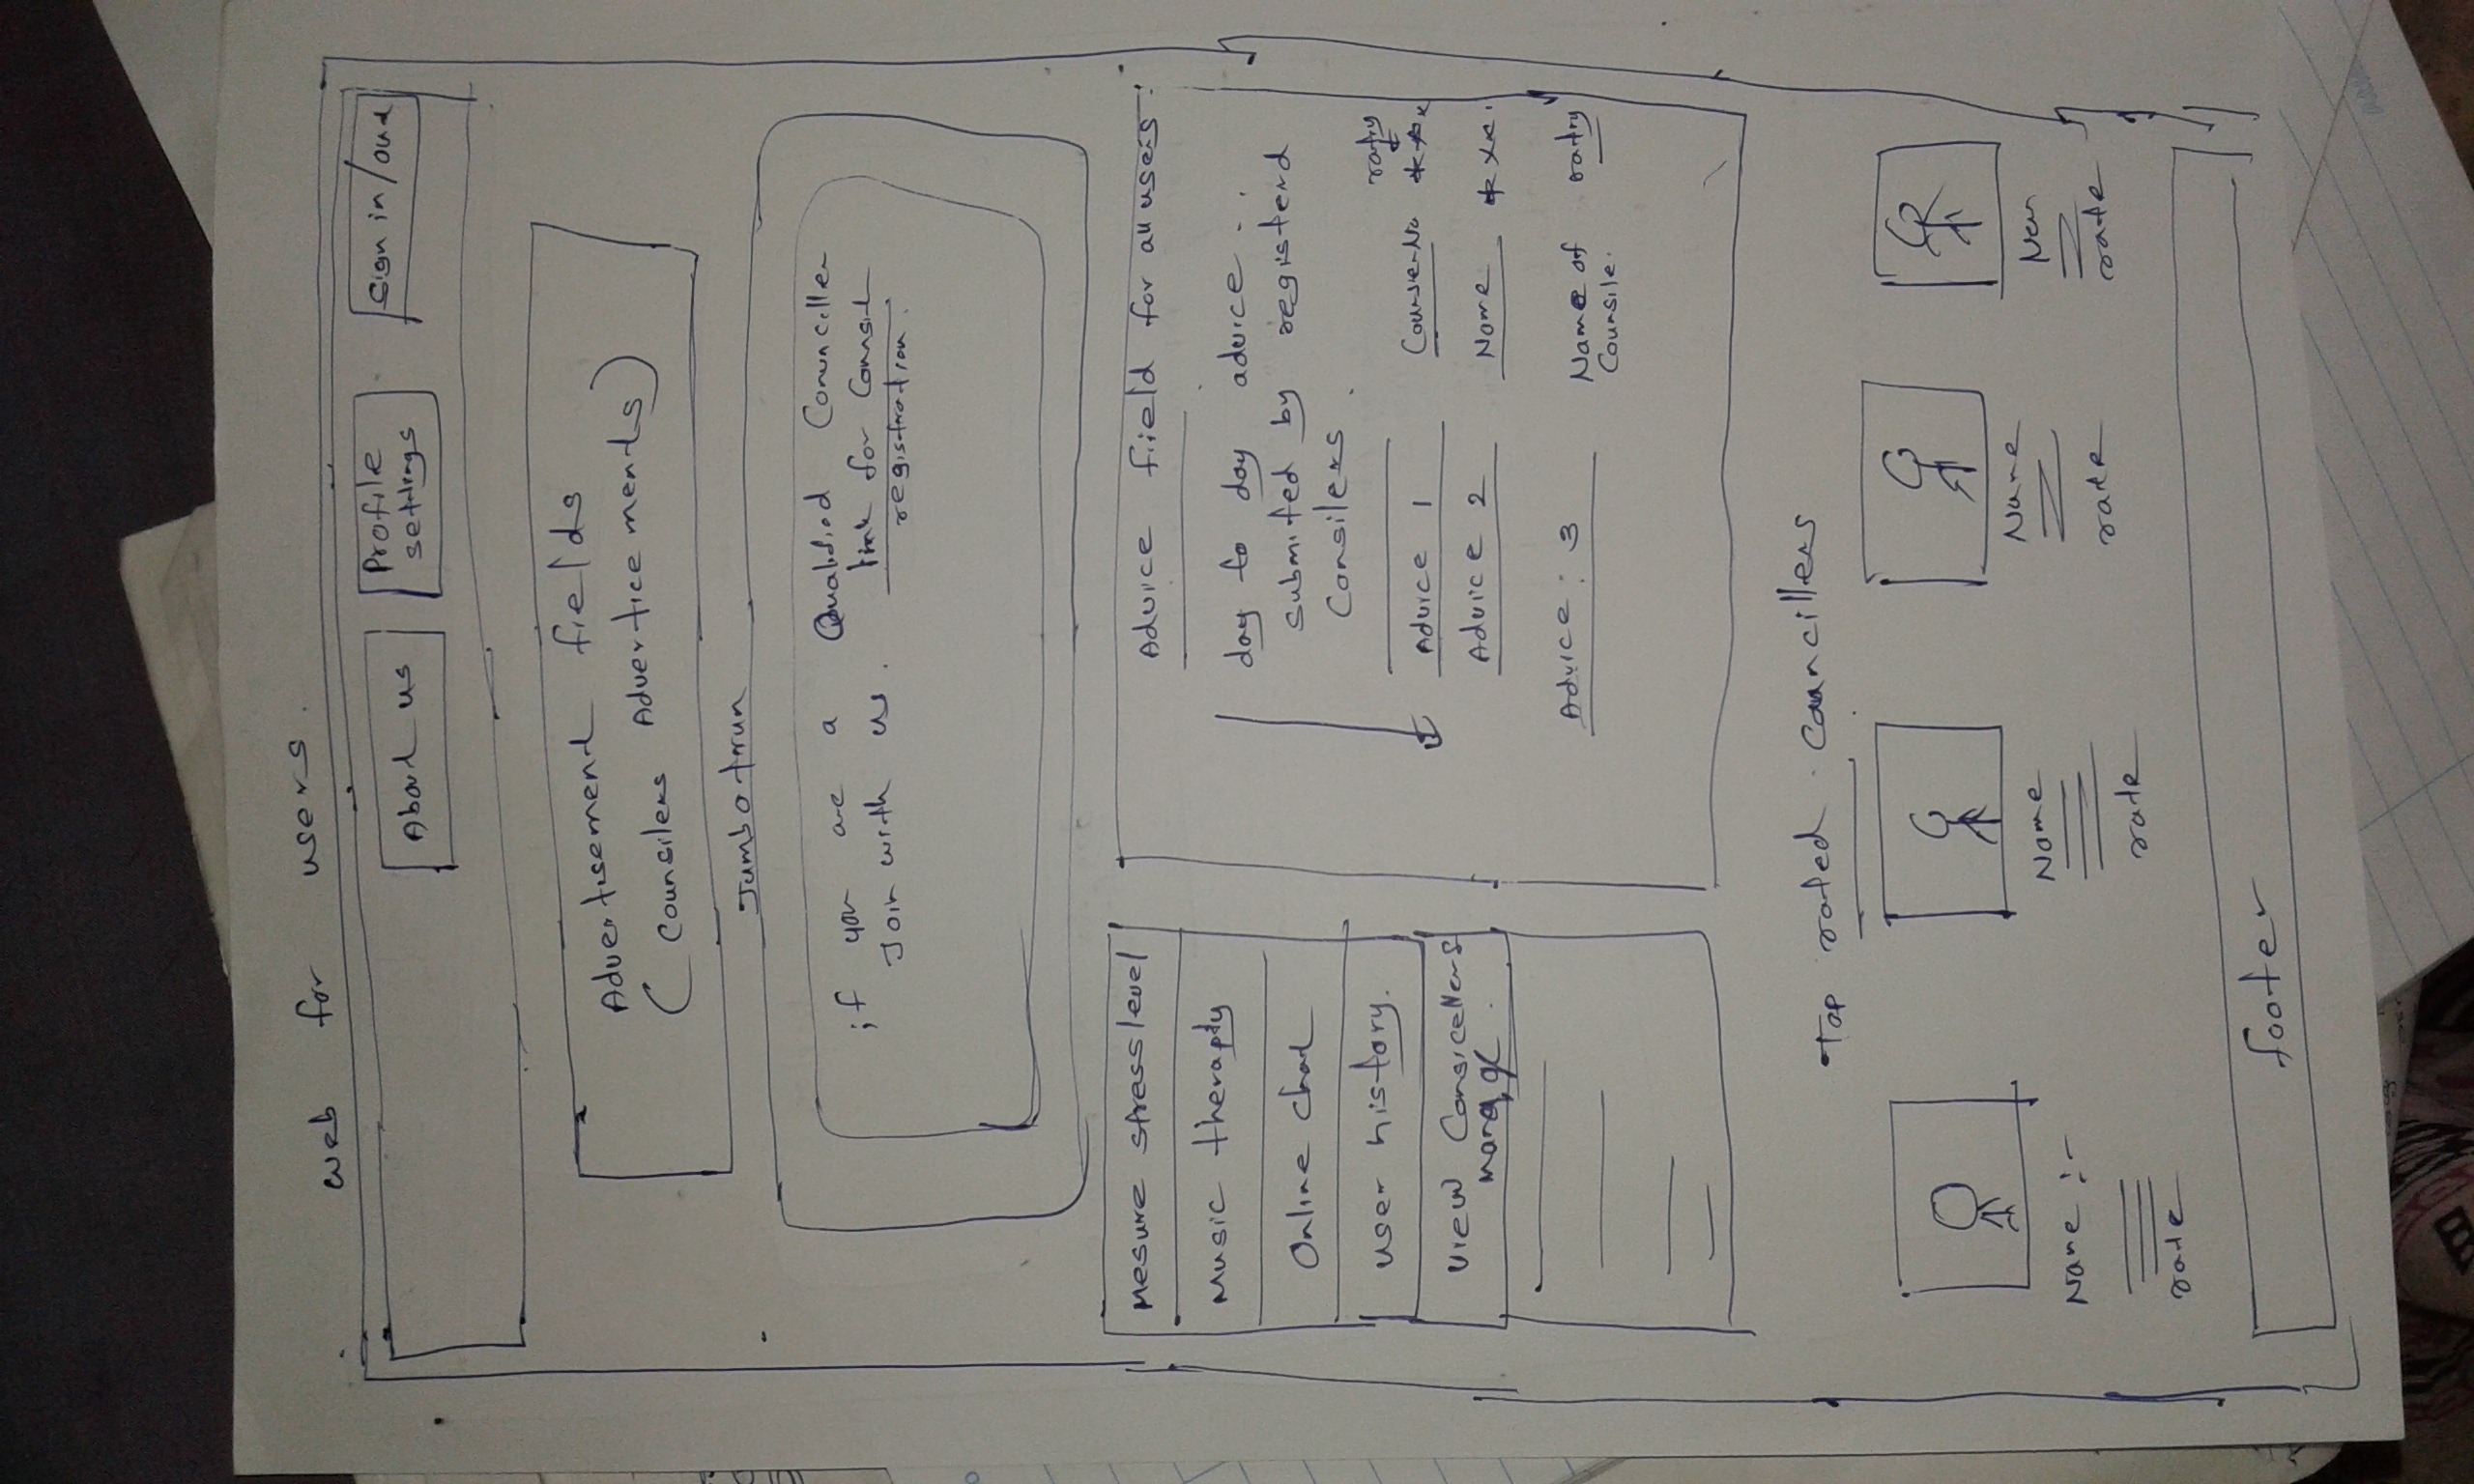 web for users.
About us
Profile
settings
sign in/out
Advertisement fields
(Counsilers Advertice ments)
Jumbotrun
if you are a Qualified Conunciller
Join with us. link for Counsil
registration.
Mesure stress level
Music therapty
Online chat
user history.
view Consicellers
manage
Advice fiield for all users.
day to day advice ..
submited by registerd
Consilers.
Advice 1
***
Advice 2 Name ***.
Advice: 3 Name of
Counsile.
Top rated Councillers
Name :-
rate
Name
rate
Name
rate
rate
footer